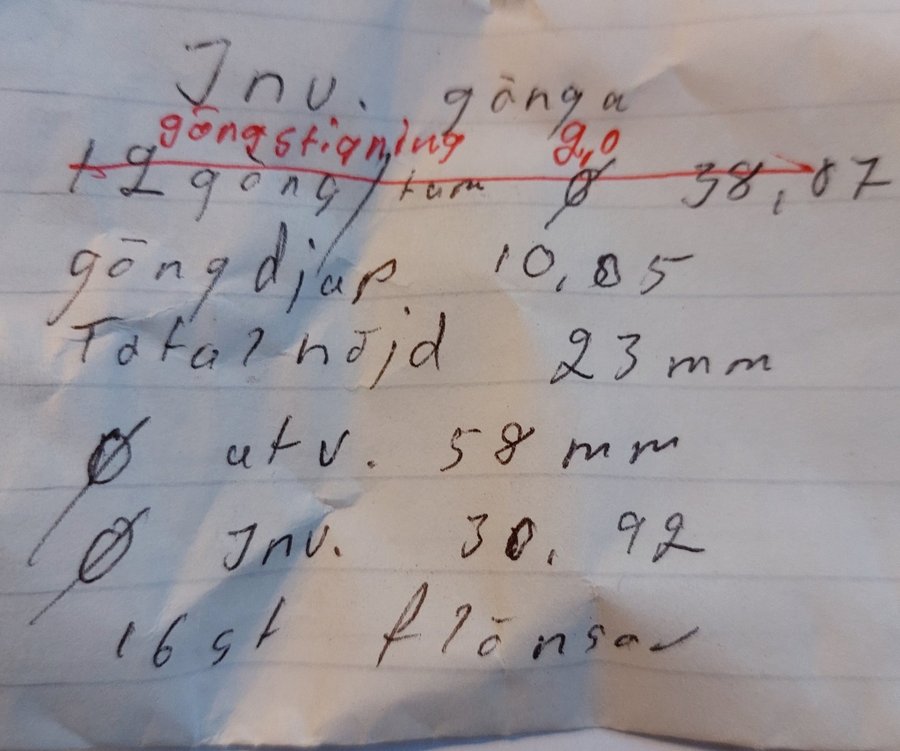 Inv. gänga
gängstigning 2,0
12 gäng/tum Ø 38,87
gängdjup 10,05
Total höjd 23 mm
Ø utv. 58 mm
Ø Inv. 30,92
16 st flänsar